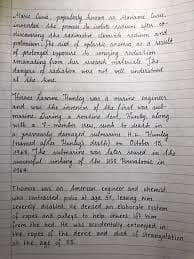 Marie Curie, popularly known as Madame Curie,
invented the process to isolate radium after co-
discovering the radioactive elements radium and
polonium. She died of aplastic anemia as a result
of prolonged exposure to ionizing radiation
emanating from her research materials. The
dangers of radiation was not well understood
at the time.
Horace Lawson Hunley was a marine engineer
and was the inventor of the first war sub-
marine. During a routine test, Hunley, along
with a 7-member crew, sunk to death in
a previously damaged submarine H. L. Hunley
(named after Hunley's death) on October 15,
1863. The submarine was later used in the
successful sinking of the USS Housatonic in
1864.
Thomas was an American engineer and chemist
who contracted polio at age 51, leaving him
severely disabled. He devised an elaborate system
of ropes and pulleys to help others lift him
from the bed. He was accidentally entangled in
the ropes of the device and died of strangulation
at the age of 55.